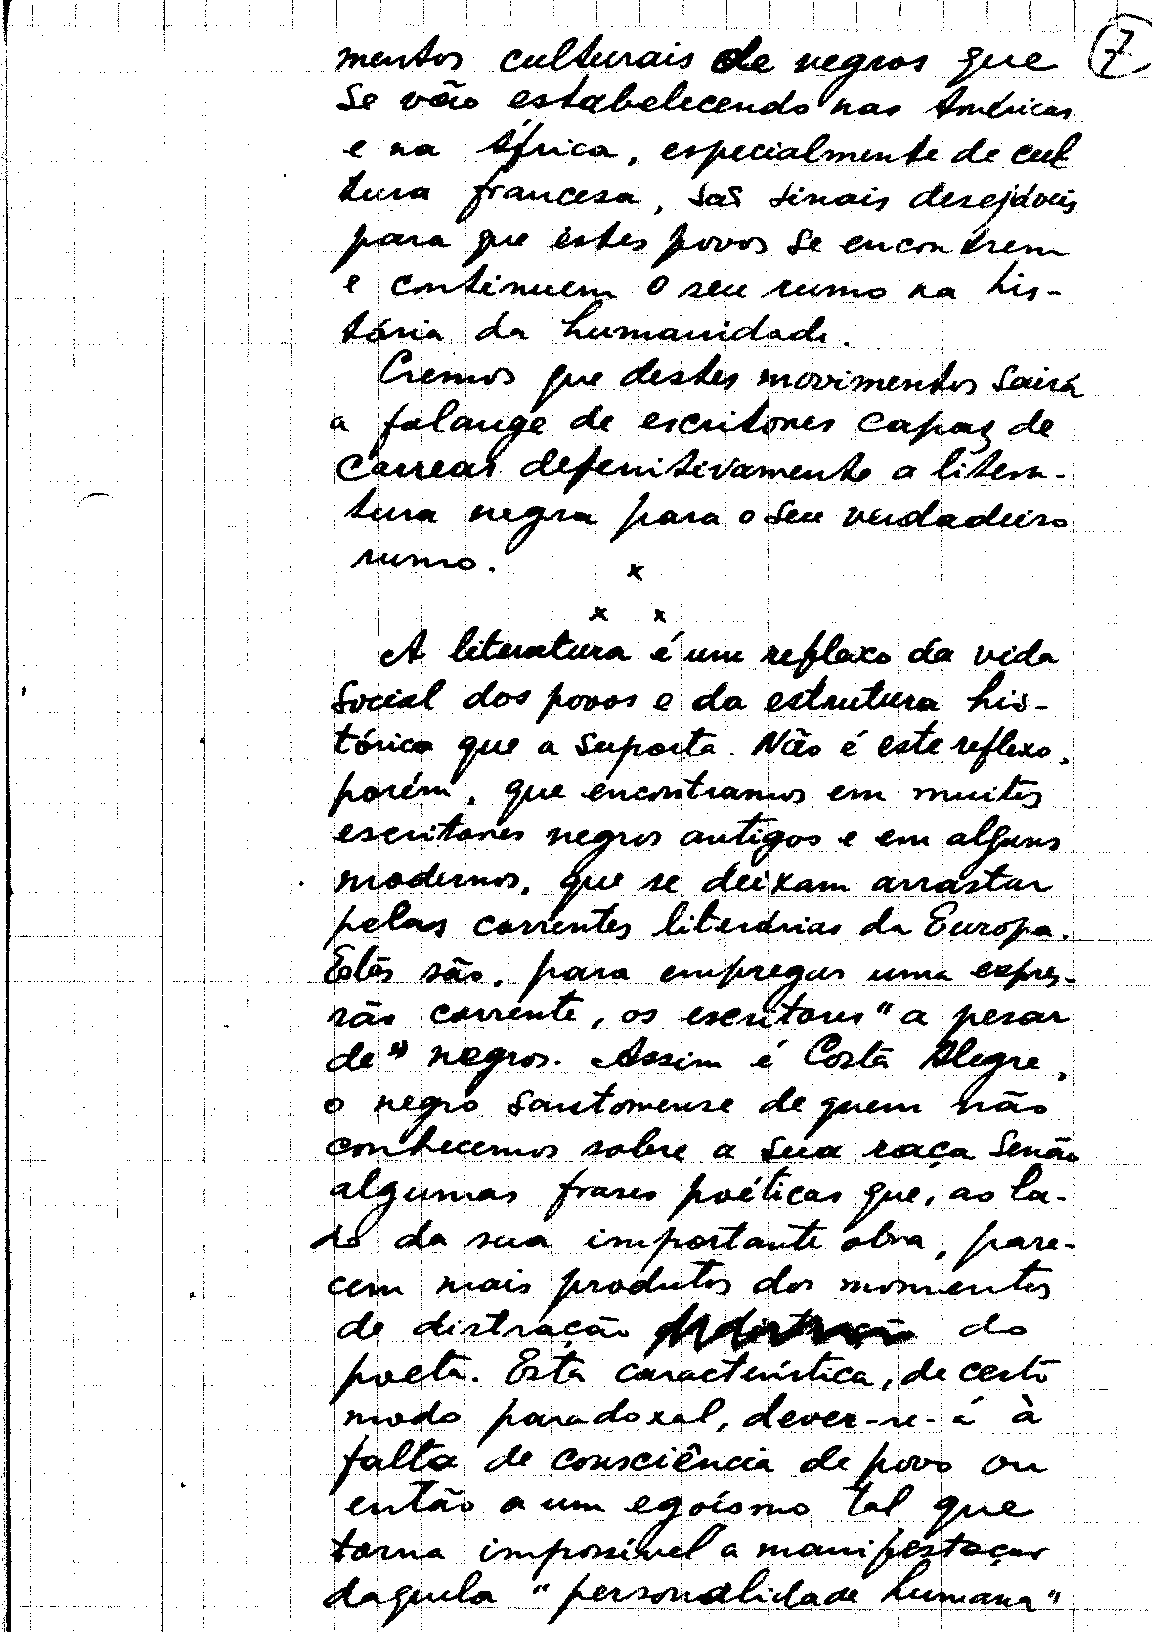 7
mentos culturais de negros que
se vão estabelecendo nas Américas
e na África, especialmente de cul
tura francesa, são sinais desejáveis
para que êstes povos se encontrem
e continuem o seu rumo na his-
tória da humanidade.
Cremos que destes movimentos sairá
a falange de escritores capaz de
carrear defenitivamente a litera-
tura negra para o seu verdadeiro
rumo.
x
x x
A literatura é um reflexo da vida
social dos povos e da estrutura his-
tórica que a suporta. Não é este reflexo,
porém, que encontramos em muitos
escritores negros antigos e em alguns
modernos, que se deixam arrastar
pelas correntes literárias da Europa.
Estes são, para empregar uma expres-
são corrente, os escritores "a pesar
de" negros. Assim é Costa Alegre,
o negro santomense de quem não
conhecemos sobre a sua raça senão
algumas frases poéticas que, ao la-
do da sua importante obra, pare-
cem mais produtos dos momentos
de distração do
poeta. Esta característica, de certo
modo paradoxal, dever-se-á à
falta de consciência de povo ou
então a um egoísmo tal que
torna impossível a manifestação
daquela "personalidade humana"